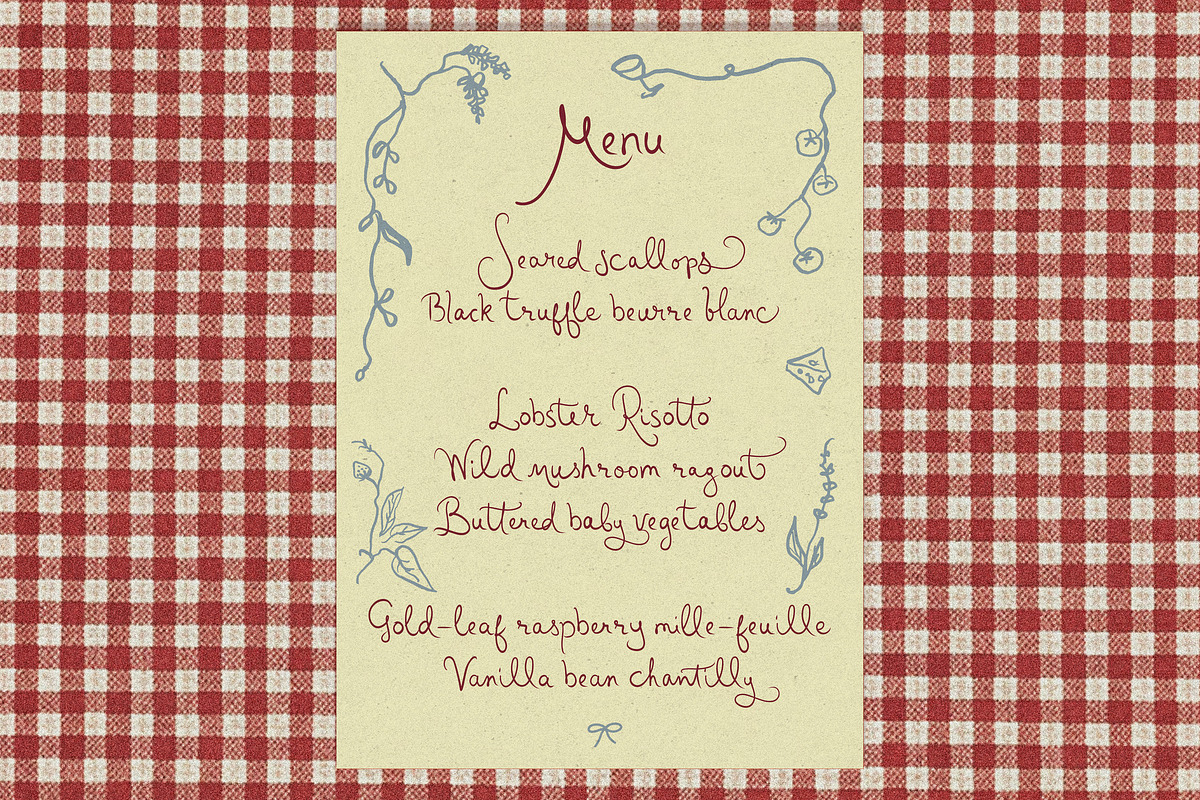 Menu
Seared scallops
Black truffle beurre blanc
Lobster Risotto
Wild mushroom ragout
Buttered baby vegetables
Gold-leaf raspberry mille-feuille
Vanilla bean chantilly